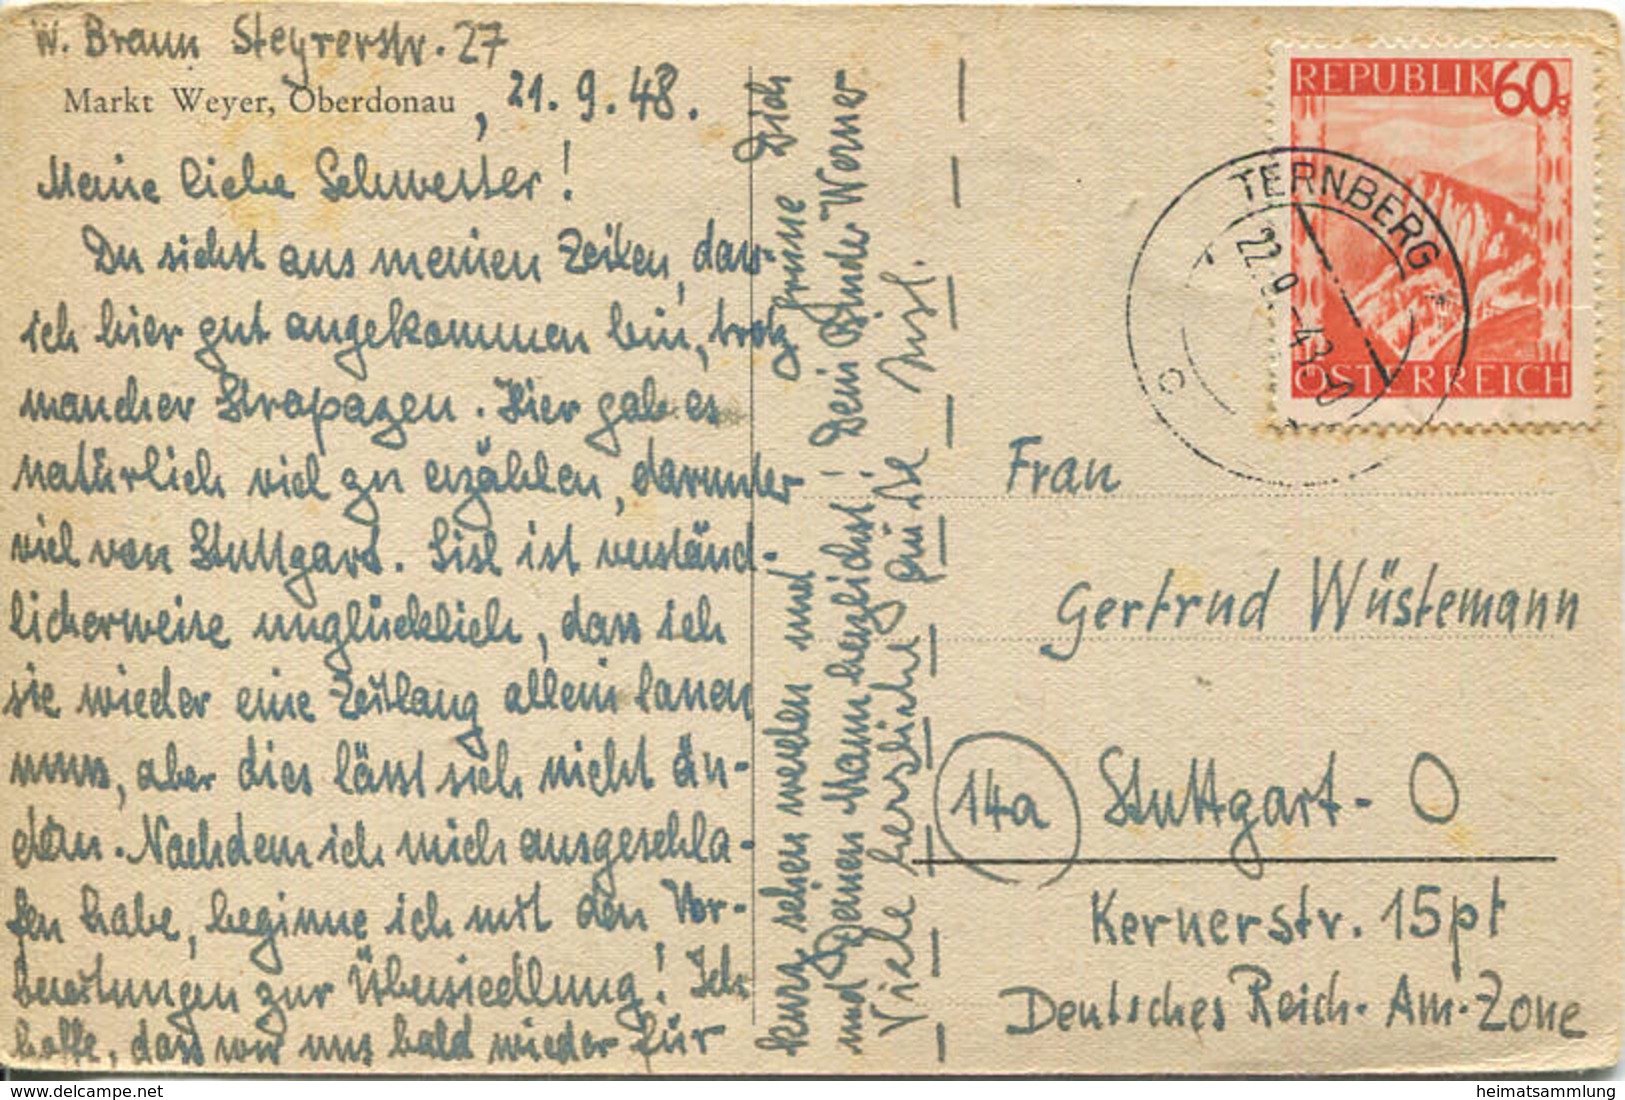 W. Braun Steyrerstr. 27
Markt Weyer, Oberdonau, 21.9.48.
Meine liebe Schwester!
Du siehst aus meinen Zeilen, dass
ich hier gut angekommen bin, trotz
mancher Strapazen. Hier gab es
natürlich viel zu erzählen, darunter
viel von Stuttgart. Lisl ist verständ-
licherweise unglücklich, dass ich
sie wieder eine Zeitlang allein lassen
muss, aber dies lässt sich nicht än-
dern. Nachdem ich mich ausgeschla-
fen habe, beginne ich mit den Vor-
bereitungen zur Übersiedlung! Ich
hoffe, dass wir uns bald wieder für
kurz sehen werden und grüsse Dich
und Deinen Mann herzlichst! Dein Bruder Werner
Viele herzliche Grüsse Lisl.
REPUBLIK 60g
ÖSTERREICH
TERNBERG
22.9.-48
c
Frau
Gertrud Wüstemann
14a Stuttgart-O
Kernerstr. 15pt
Deutsches Reich-Am-Zone
www.delcampe.net
heimatsammlung